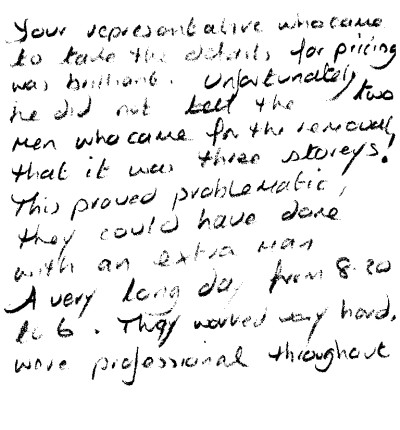 Your representative who came
to take the details for pricing
was brilliant. Unfortunately
he did not tell the two
men who came for the removal
that it was three storeys!
This proved problematic,
they could have done
with an extra man
A very long day from 8.20
to 6. They worked very hard,
were professional throughout